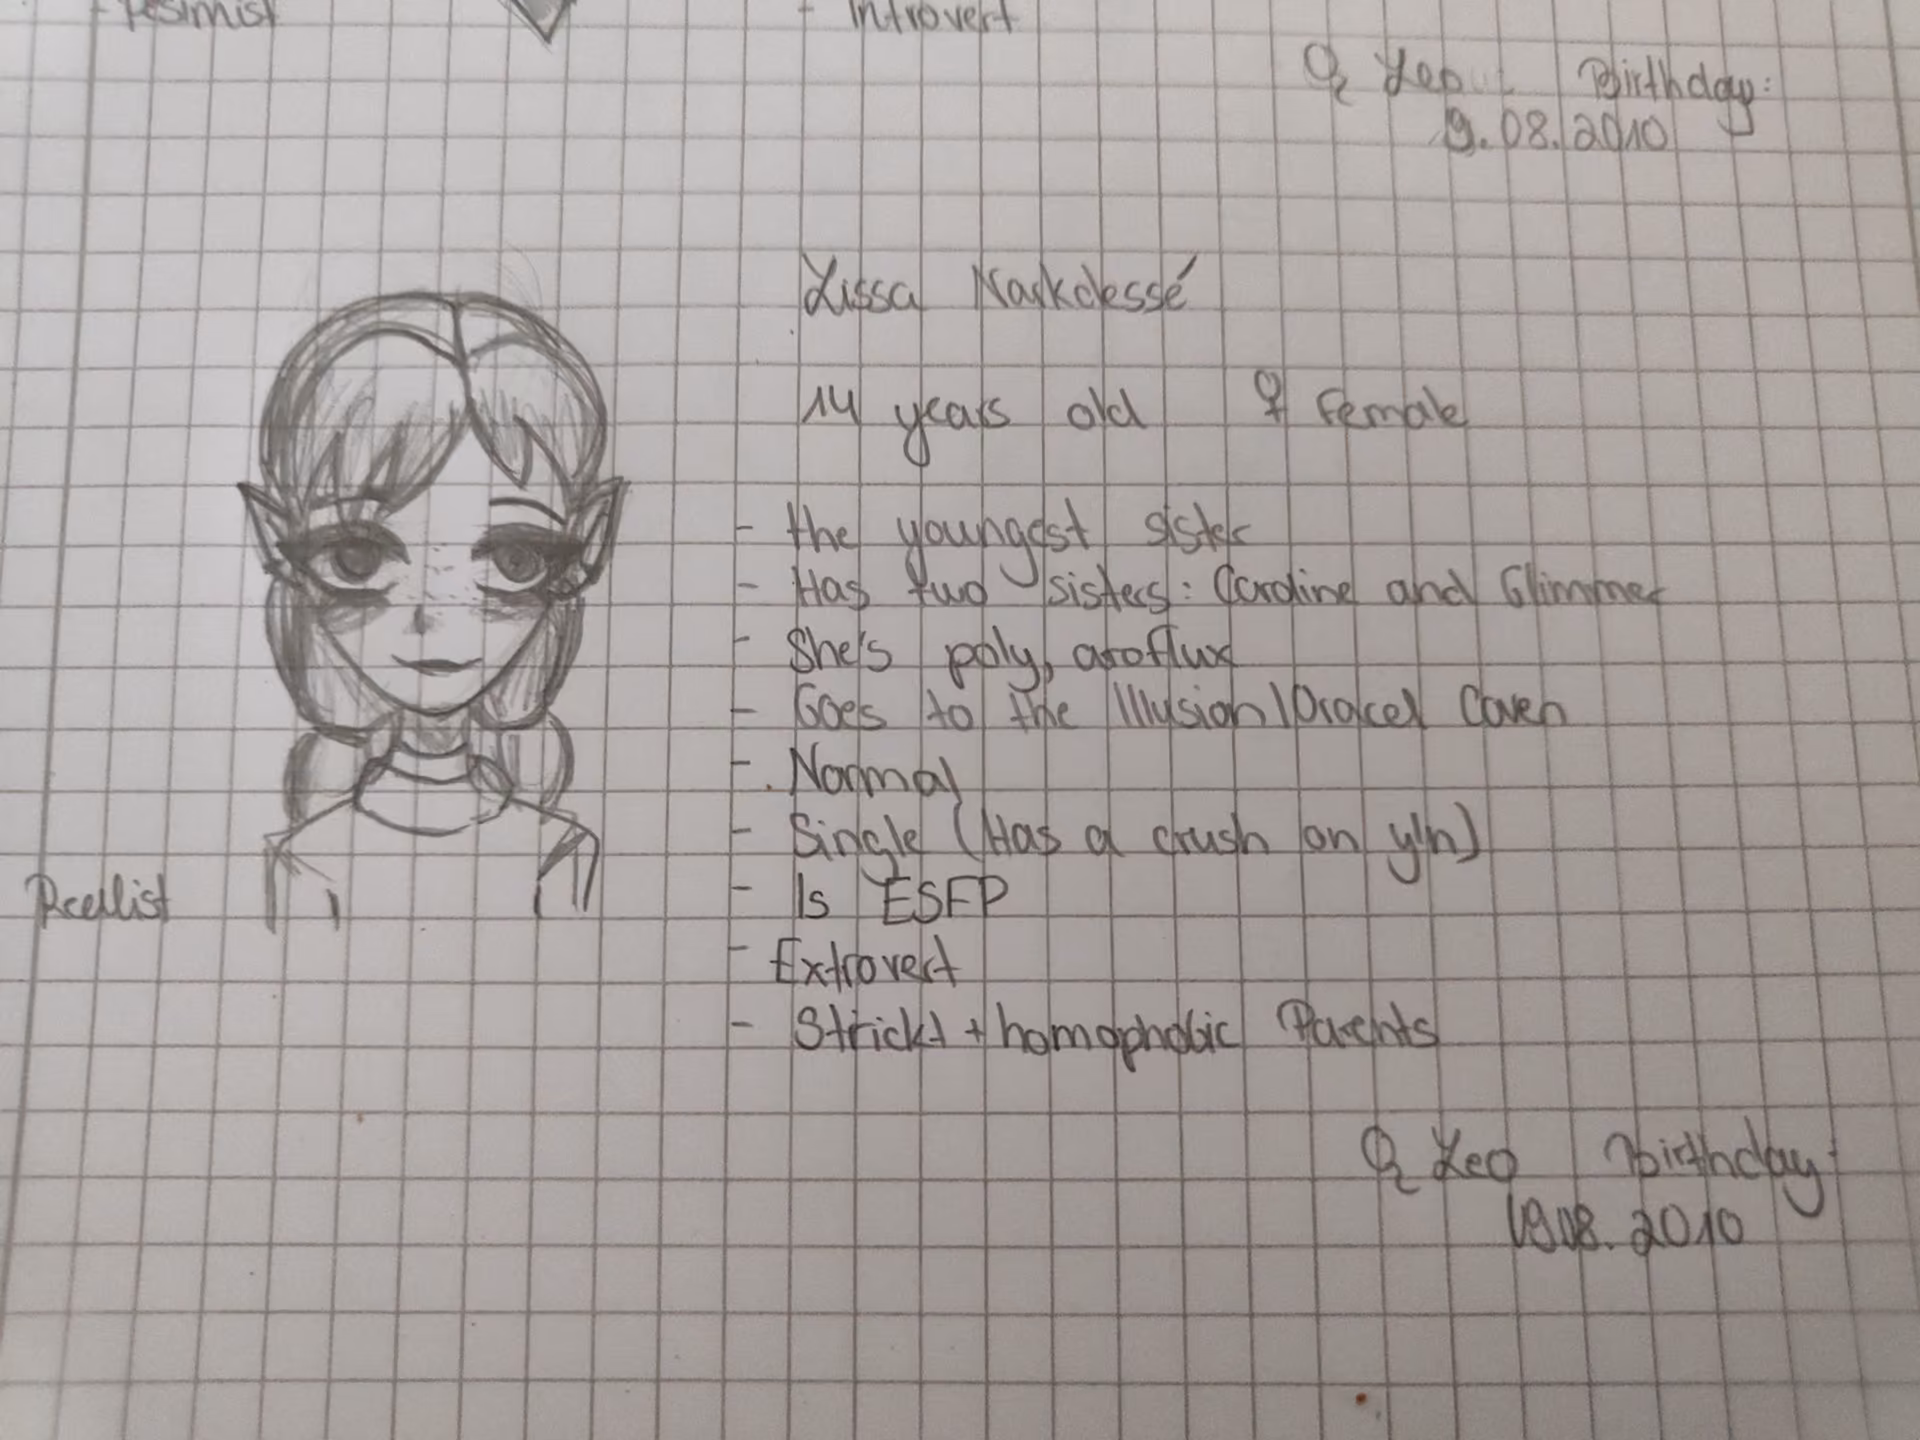 - Pesimist
- Introvert
♌ Leo Birthday:
9.08.2010
Lissa Narkdessé
14 years old ♀ female
- the youngest sister
- Has two sisters: Caroline and Glimmer
- She's poly, aroflux
- Goes to the Illusion/Oracel Coven
- Normal
- Single (Has a crush on y/n)
- Is ESFP
- Extrovert
- Strickt + homophobic Parents
Reellist
♌ Leo Birthday:
09.08.2010